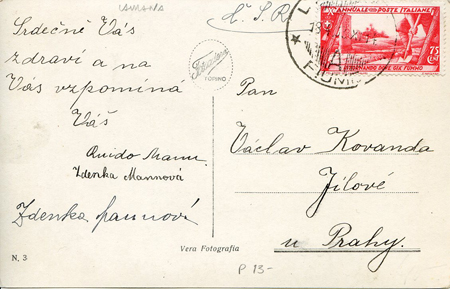 LAURANA
Č. S. R.
Srdečně Vás
zdraví a na
Vás vzpomíná
Váš
Quido Mann
Zdenka Mannová
Zdenka
N. 3
Vera Fotografia
Fotocelere
TORINO
Pan
Václav Kovanda
Jílové
u Prahy.
P 13-
X ANNUALE POSTE ITALIANE
75
CENT
FIUME